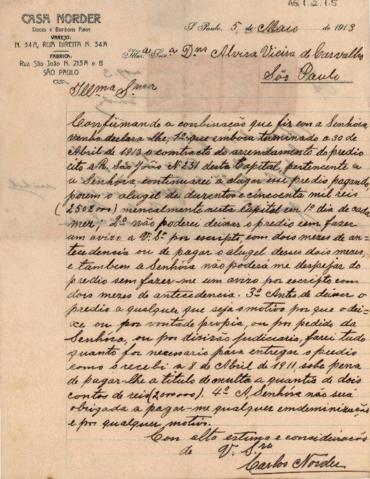 AS 1.2.1.5
CASA NORDER
Doces e Bonbons Finos
VAREJO:
N. 34 A, RUA DIREITA N. 34 A
FABRICA:
Rua São João N. 213 A e B
SÃO PAULO
S. Paulo, 5 de Maio de 1913
Illma. Sra. Dna. Alvira Vieira de Carvalho
São Paulo
Illma Snra
Confirmando a combinação que fiz com a Senhora,
venho declarar-lhe, 1º que embora terminado a 30 de
Abril de 1913 o contracto de arrendamento do predio
cito a R. São João Nº 231 desta Capital, pertencente a
a Senhora continuarei a alugar o predio pagando
porem o alugel de duzentos e cincoenta mil reis
(250$000) mencalmente nesta Capital em 1º dia de cada
mez, 2º não poderei deixar o predio sem fazer
um avizo a V. Sª por escripto, com dois mezes de an-
tecedensia ou de pagar o alugel desses dois mezes
e tambem a Senhora não poderá me despejar do
predio sem fazer-me um avizo por escripto com
dois mezes de antecedencia. 3º Antes de deixar o
predio a qualquer que seja o motivo por que o dei-
xe ou por vontade propria, ou por pedido da
Senhora, ou por divisão judiciaria, farei tudo
quanto for necessario para entregar o predio
como o recebi a 8 de Abril de 1911, sobe pena
de pagar-lhe a titulo de multa a quantia de dois
contos de reis (2:000$000). 4º A Senhora não será
obrigada a pagar-me qualquer indeminização
e por qualquer motivo.
Com alta estima e consideração
de V. Sra
Carlos Norder